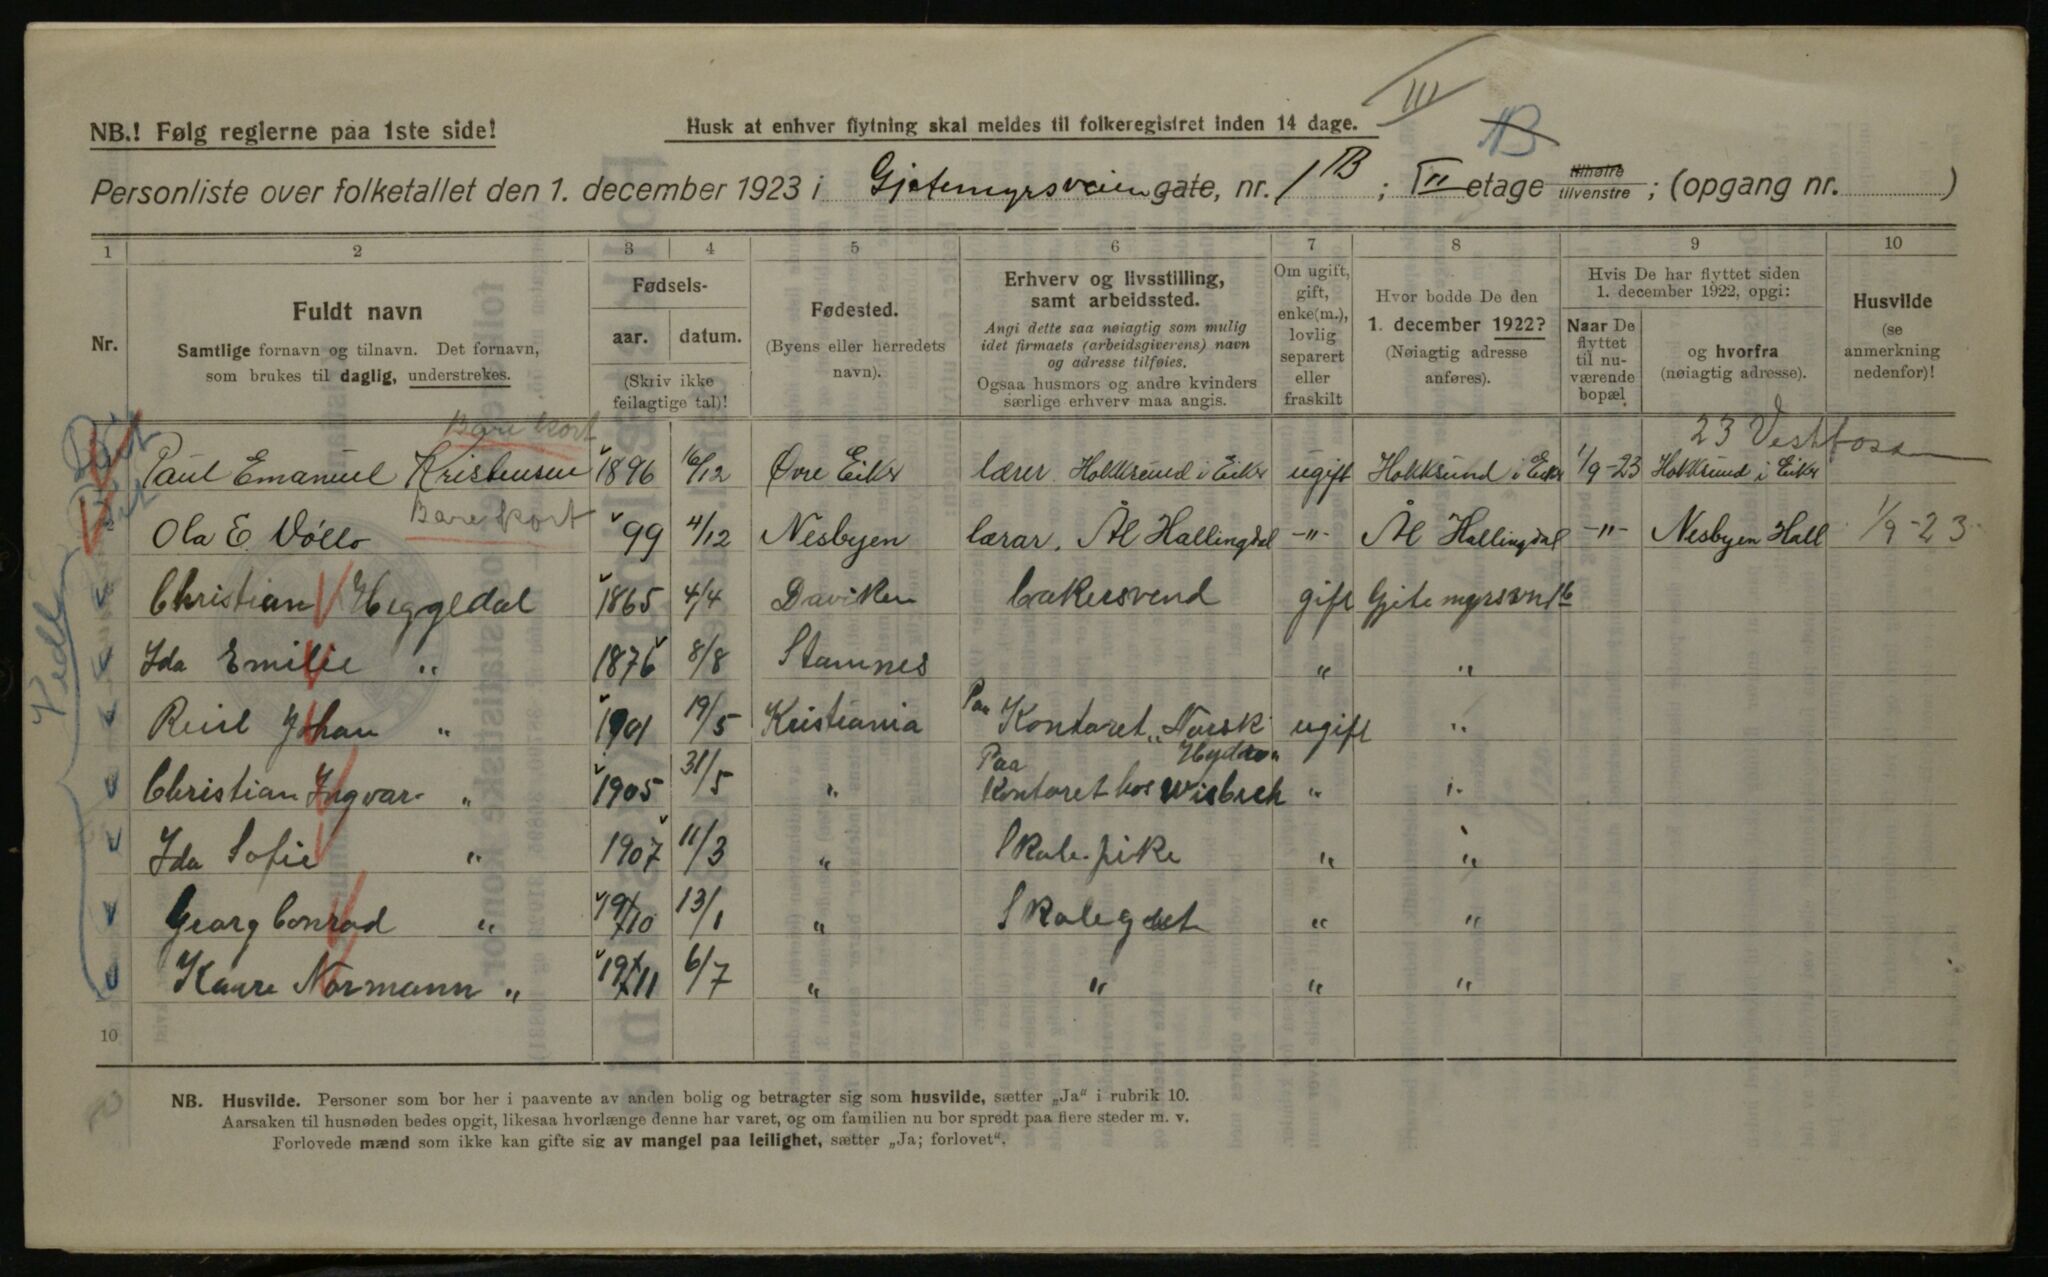 III
NB.! Følg reglerne paa 1ste side!
Husk at enhver flytning skal meldes til folkeregistret inden 14 dage.
1B
Personliste over folketallet den 1. december 1923 i Gjetemyrsveien gate, nr. 1B; II etage tilhøire tilvenstre; (opgang nr. )
1 2 3 4 5 6 7 8 9 10
Nr.
Fuldt navn
Samtlige fornavn og tilnavn. Det fornavn,
som brukes til daglig, understrekes.
Fødsels-
aar. datum.
(Skriv ikke
feilagtige tal)!
Fødested.
(Byens eller herredets
navn).
Erhverv og livsstilling,
samt arbeidssted.
Angi dette saa nøiagtig som mulig
idet firmaets (arbeidsgiverens) navn
og adresse tilføies.
Ogsaa husmors og andre kvinders
særlige erhverv maa angis.
Om ugift,
gift,
enke(m.),
lovlig
separert
eller
fraskilt
Hvor bodde De den
1. december 1922?
(Nøiagtig adresse
anføres).
Hvis De har flyttet siden
1. december 1922, opgi:
Naar De
flyttet
til nu-
værende
bopæl
og hvorfra
(nøiagtig adresse).
Husvilde
(se
anmerkning
nedenfor)!
Bare kort 23 Vestfossen
Paul Emanuel Kristensen 1896 16/12 Øvre Eiker lærer Hokksund i Eiker ugift Hokksund i Eiker 1/9-23 Hokksund i Eiker
Bare kort
2 Ola E. Vøllo 99 4/12 Nesbyen lærar. Ål Hallingdal -"- Ål Hallingdal -"- Nesbyen Hall 1/9-23
Christian Heggedal 1865 4/4 Daviken bakersvend gift Gjetemyrsvn 1b
Ida Emilie " 1876 8/8 Stamnes " "
Johan " 1901 19/5 Kristiania Paa Kontoret "Norsk Hydro" ugift "
Christian Ingvar " 1905 31/5 " Paa Kontoret hos Wisbech " "
Ida Sofie " 1907 11/3 " Skolepike " "
Georg Conrad " 1910 13/1 " Skolegut " "
Kaare Normann " 1911 6/7 " " " "
10
NB. Husvilde. Personer som bor her i paavente av anden bolig og betragter sig som husvilde, sætter „Ja“ i rubrik 10.
Aarsaken til husnøden bedes opgit, likesaa hvorlænge denne har varet, og om familien nu bor spredt paa flere steder m. v.
Forlovede mænd som ikke kan gifte sig av mangel paa leilighet, sætter „Ja; forlovet“.